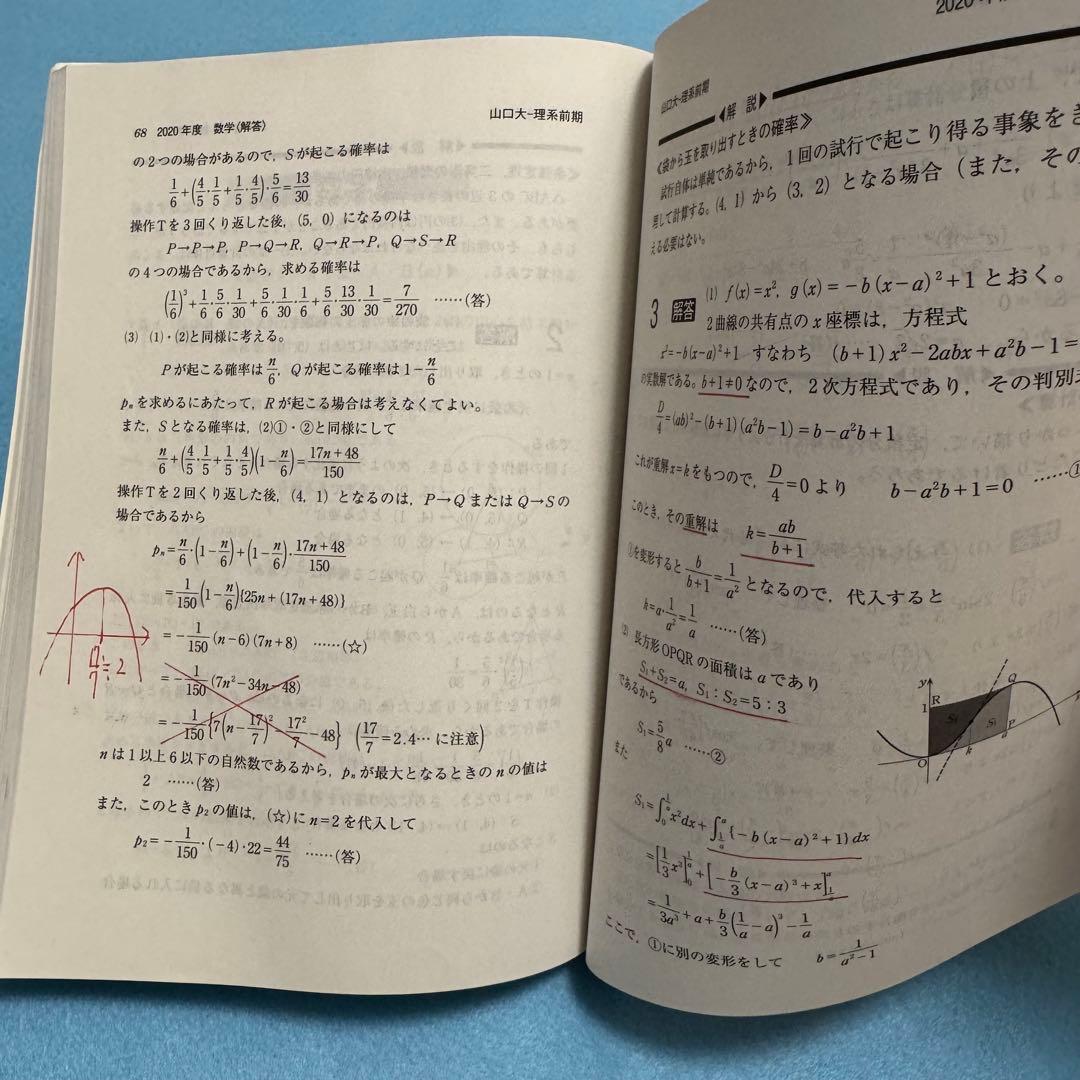 68 2020年度 数学〈解答〉 山口大-理系前期
の2つの場合があるので,Sが起こる確率は
1/6+(4/5・1/5+1/5・4/5)・5/6=13/30
操作Tを3回くり返した後,(5, 0) になるのは
P→P→P, P→Q→R, Q→R→P, Q→S→R
の4つの場合であるから,求める確率は
(1/6)³+1/6・5/6・1/30+5/6・1/30・1/6+5/6・13/30・1/30=7/270 ……(答)
(3) (1)・(2)と同様に考える。
Pが起こる確率は n/6, Qが起こる確率は 1−n/6
pₙを求めるにあたって,Rが起こる場合は考えなくてよい。
また,Sとなる確率は,(2)①・②と同様にして
n/6+(4/5・1/5+1/5・4/5)(1−n/6)=(17n+48)/150
操作Tを2回くり返した後,(4, 1) となるのは,P→QまたはQ→Sの
場合であるから
pₙ=n/6・(1−n/6)+(1−n/6)・(17n+48)/150
=1/150(1−n/6){25n+(17n+48)}
=−1/150(n−6)(7n+8) ……(☆)
=−1/150(7n²−34n−48)
=−1/150{7(n−17/7)²−17²/7−48} (17/7=2.4… に注意)
17/7≒2
nは1以上6以下の自然数であるから,pₙが最大となるときのnの値は
2 ……(答)
また,このときp₂の値は,(☆)にn=2を代入して
p₂=−1/150・(−4)・22=44/75 ……(答)
山口大-理系前期
◀解 説▶
≪袋から玉を取り出すときの確率≫
試行自体は単純であるから,1回の試行で起こり得る事象をき
理して計算する。(4, 1) から (3, 2) となる場合(また,その
える必要はない。
3 解答 (1) f(x)=x², g(x)=−b(x−a)²+1とおく。
2曲線の共有点のx座標は,方程式
x²=−b(x−a)²+1 すなわち (b+1)x²−2abx+a²b−1=
の実数解である。b+1≠0なので,2次方程式であり,その判別
D/4=(ab)²−(b+1)(a²b−1)=b−a²b+1
これが重解x=kをもつので,D/4=0より b−a²b+1=0 ……①
このとき,その重解は k=ab/(b+1)
①を変形すると b/(b+1)=1/a² となるので,代入すると
k=a・1/a²=1/a ……(答)
(2) 長方形OPQRの面積はaであり
S₁+S₂=a, S₁:S₂=5:3
であるから
S₁=5/8 a ……②
また
y
1
R
Q
P
O
k
a
S₁=∫₀^(1/a) x²dx+∫_(1/a)^a {−b(x−a)²+1}dx
=[1/3 x³]₀^(1/a)+[−b/3(x−a)³+x]_(1/a)^a
=1/(3a³)+a+b/3(1/a−a)³−1/a
ここで,①に別の変形をして b=1/(a²−1)